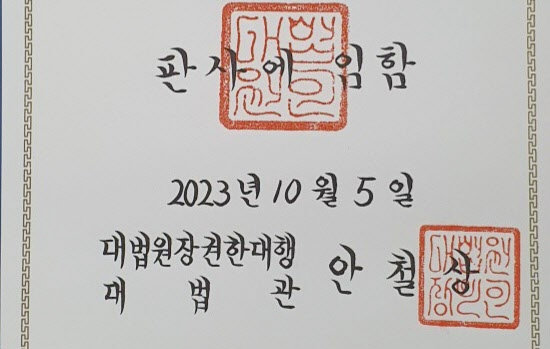 판사에 임함
2023년 10월 5일
대법원장권한대행
대 법 관 안 철 상